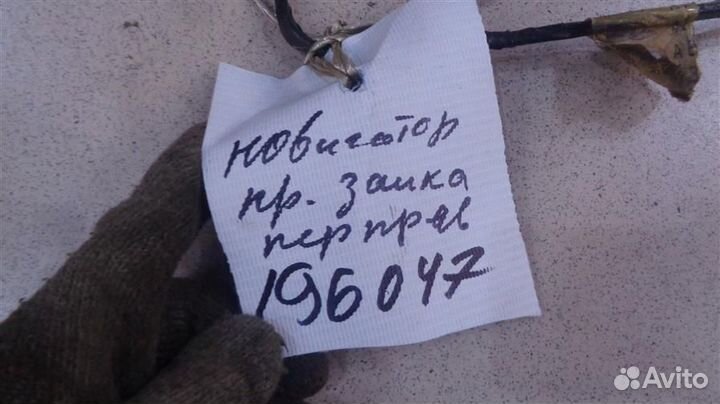 Новигатор
пр. замка
пер прав
196047
Avito